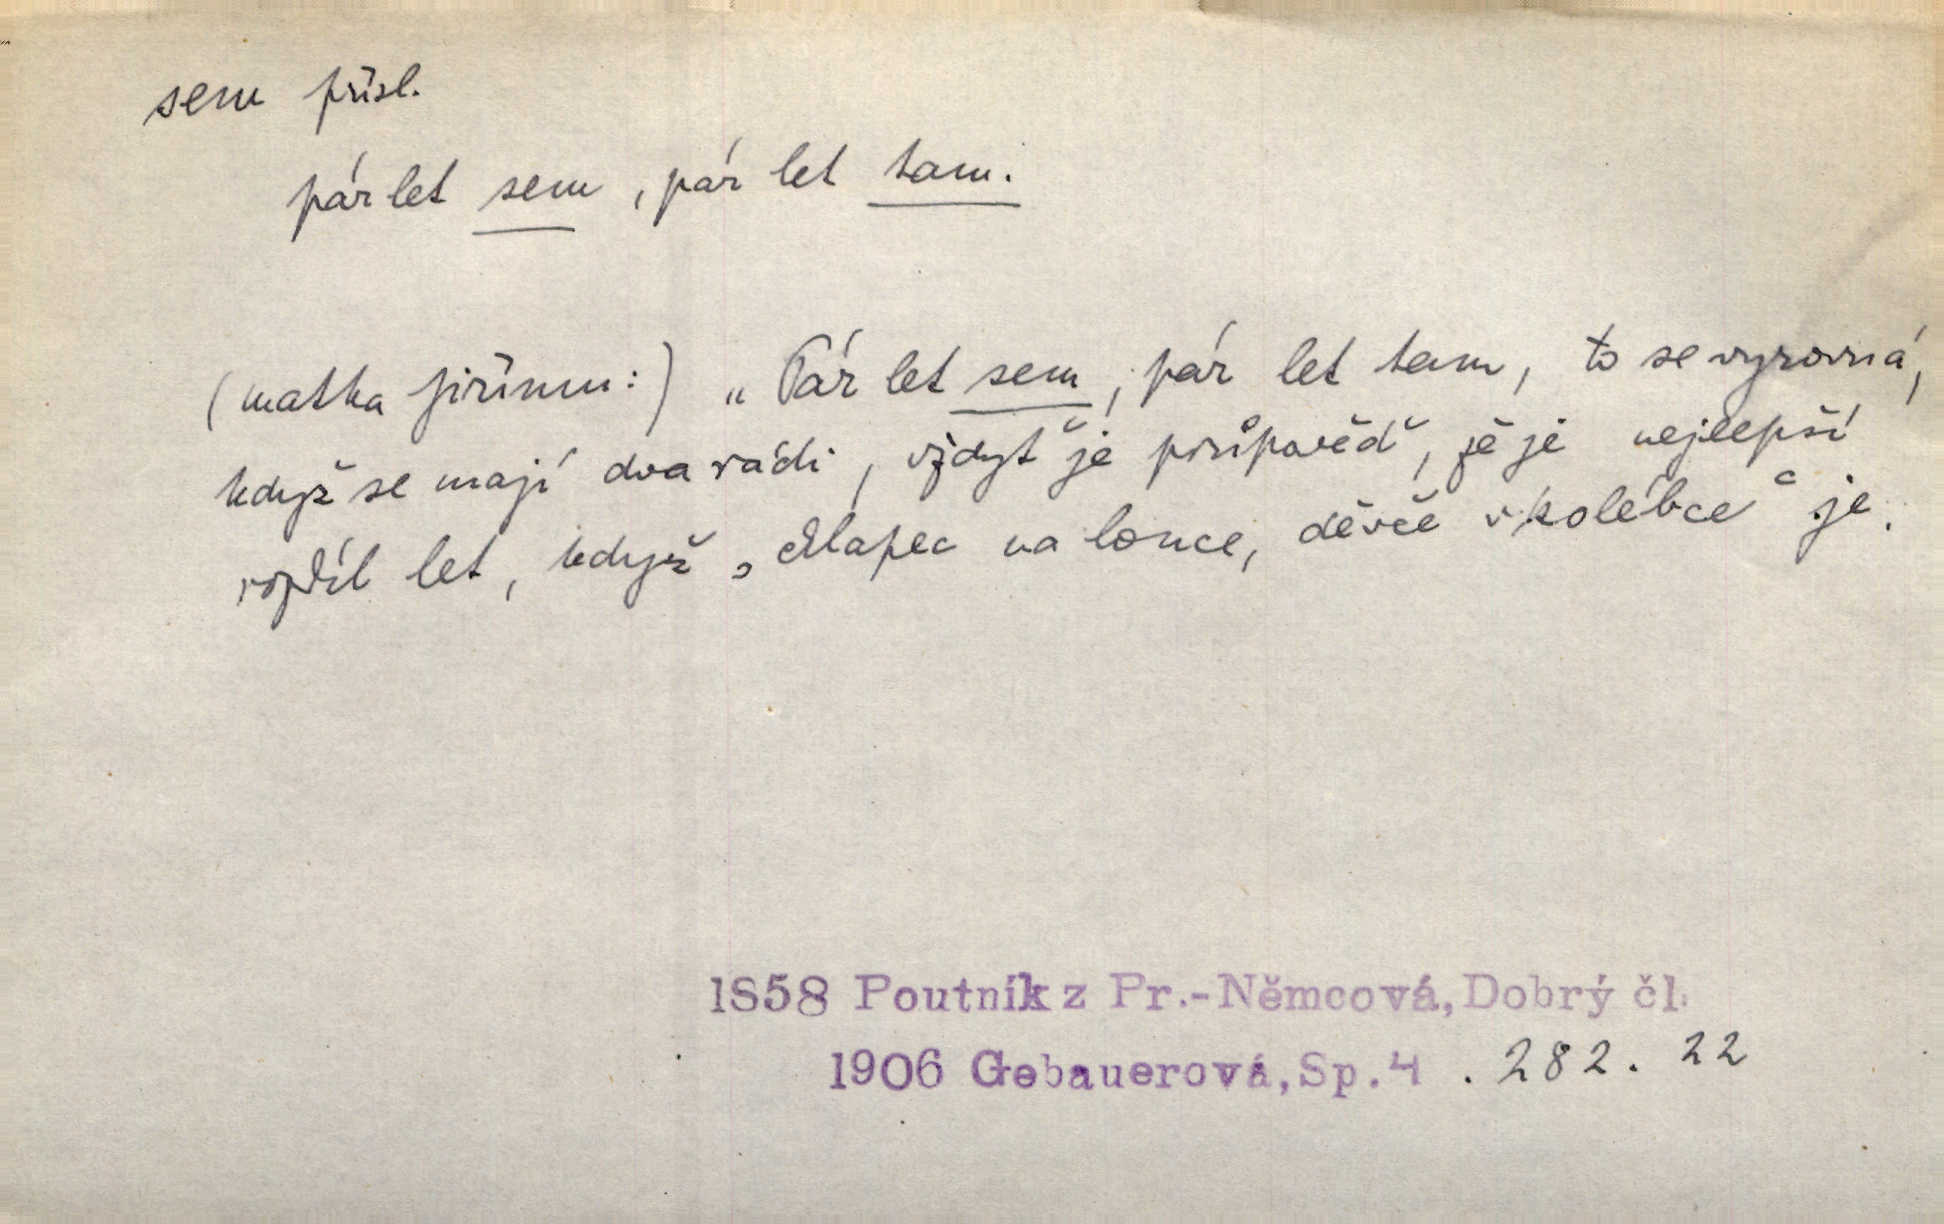 sem přísl.
pár let sem, pár let tam.
(matka Jiřímu:) „Pár let sem, pár let tam, to se vyrovná,
když se mají dva rádi, vždyť je průpověď, že je nejlepší
rozdíl let, když ‚chlapec na louce, děvče v kolébce‘ je.
1858 Poutník z Pr.-Němcová, Dobrý čl.
1906 Gebauerová, Sp. 4 . 282. 22